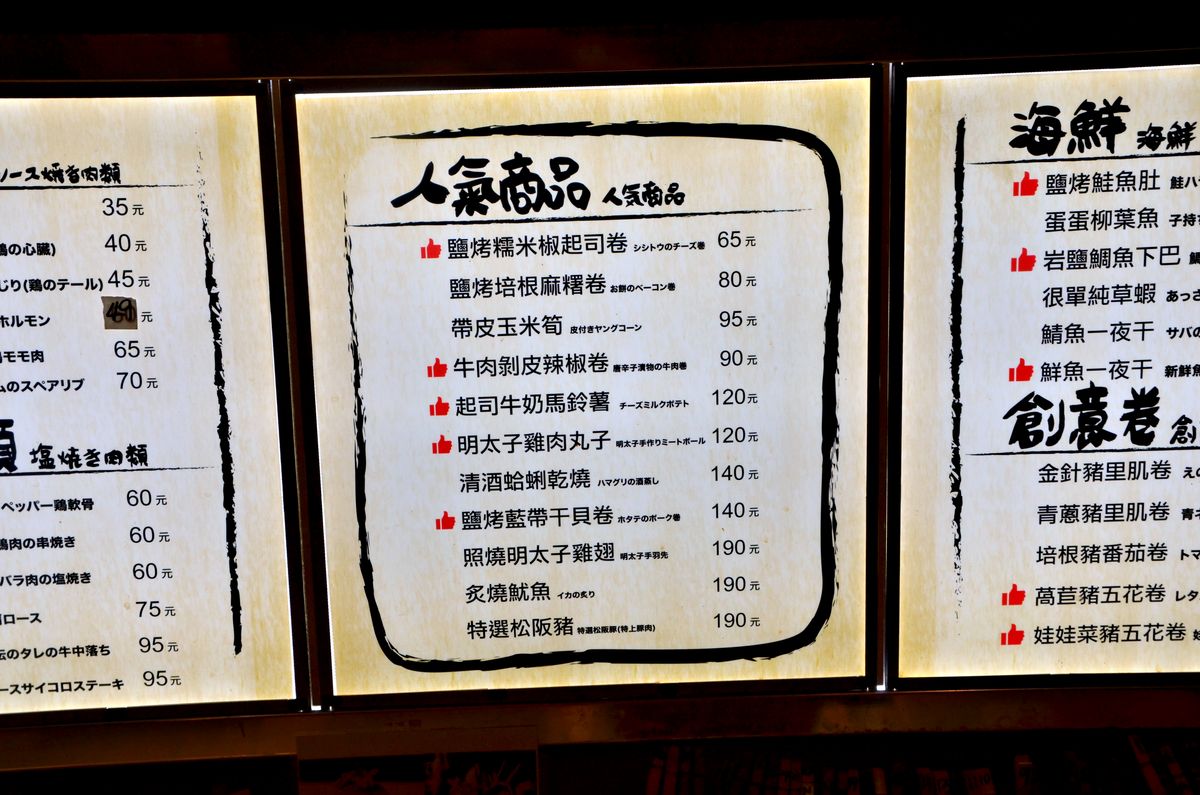 ソース焼き肉類
35元
鶏の心臓) 40元
じり(鶏のテール) 45元
ホルモン 元
モモ肉 65元
ムのスペアリブ 70元
類 塩焼き肉類
ペッパー鶏軟骨 60元
鶏肉の串焼き 60元
バラ肉の塩焼き 60元
ロース 75元
のタレの牛中落ち 95元
ースサイコロステーキ 95元
人氣商品 人気商品
鹽烤糯米椒起司卷 シシトウのチーズ巻 65元
鹽烤培根麻糬卷 お餅のベーコン巻 80元
帶皮玉米筍 皮付きヤングコーン 95元
牛肉剝皮辣椒卷 唐辛子漬物の牛肉巻 90元
起司牛奶馬鈴薯 チーズミルクポテト 120元
明太子雞肉丸子 明太子手作りミートボール 120元
清酒蛤蜊乾燒 ハマグリの酒蒸し 140元
鹽烤藍帶干貝卷 ホタテのポーク巻 140元
照燒明太子雞翅 明太子手羽先 190元
炙燒魷魚 イカの炙り 190元
特選松阪豬 特選松阪豚(特上豚肉) 190元
海鮮 海鮮
鹽烤鮭魚肚 鮭ハ
蛋蛋柳葉魚 子持
岩鹽鯛魚下巴
很單純草蝦 あっさ
鯖魚一夜干 サバの
鮮魚一夜干 新鮮魚
創意卷 創
金針豬里肌卷 えの
青蔥豬里肌卷 青ネ
培根豬番茄卷 トマ
萵苣豬五花卷 レタ
娃娃菜豬五花卷